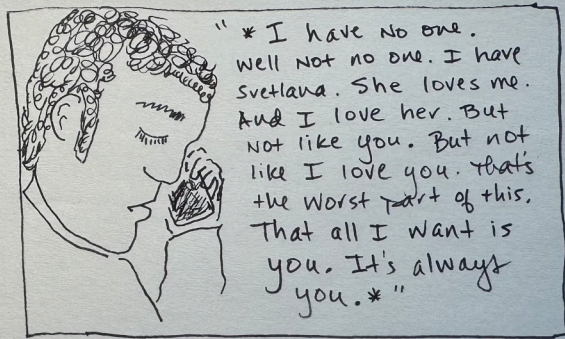 "*I have no one.
Well not no one. I have
Svetlana. She loves me.
And I love her. But
not like you. But not
like I love you. that's
the worst part of this.
That all I want is
you. It's always
you.*"